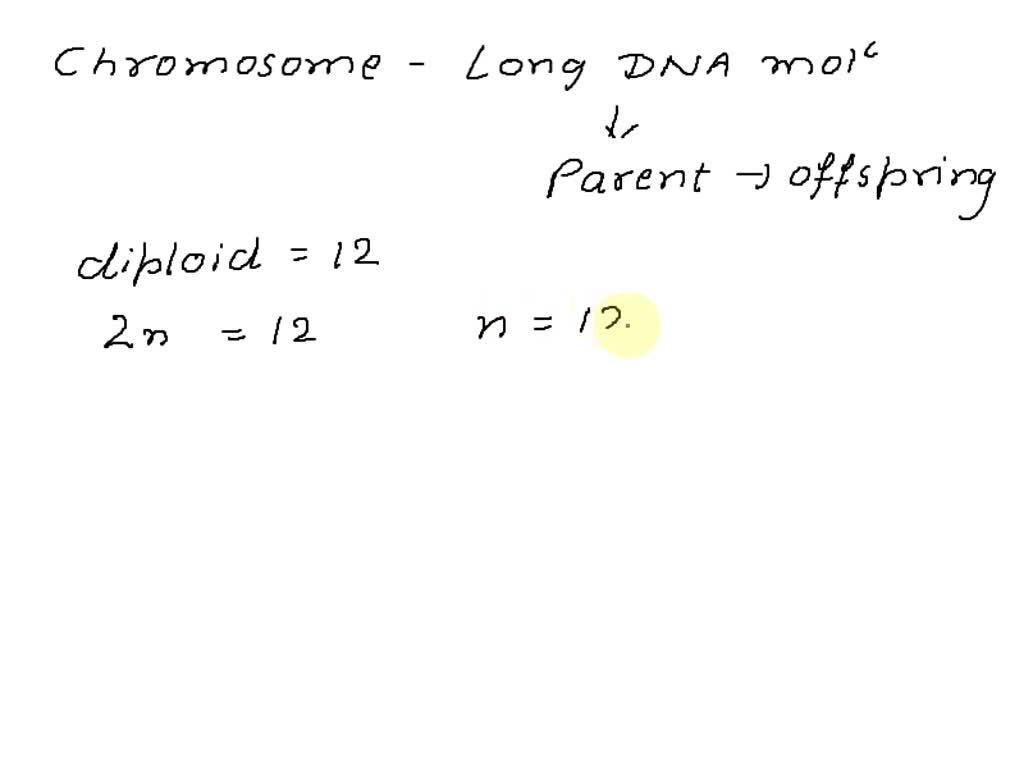 Chromosome - Long DNA molc
↓
Parent → offspring
diploid = 12
2n = 12 n = 12